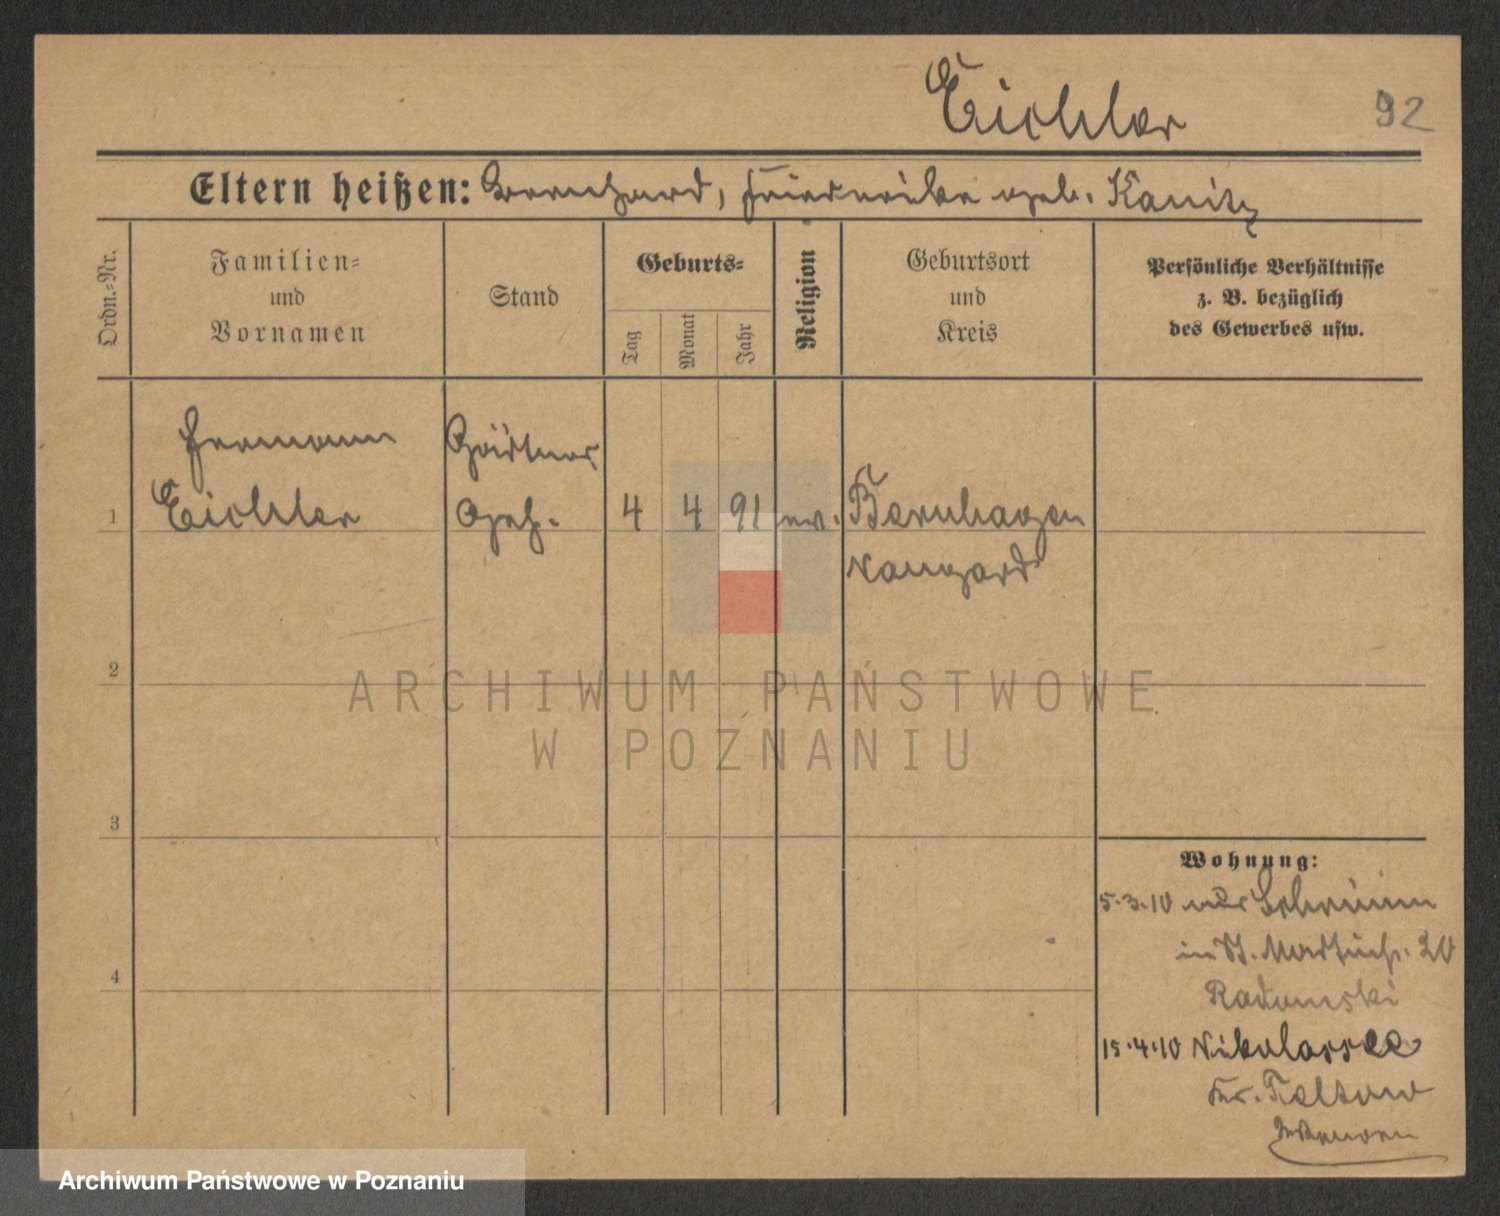 Eichler
92
Eltern heißen: Bernhard, Friederike geb. Kanitz
Ordn.-Nr.
Familien-
und
Vornamen
Stand
Geburts-
Tag
Monat
Jahr
Religion
Geburtsort
und
Kreis
Persönliche Verhältnisse
z. B. bezüglich
des Gewerbes usw.
Hermann
Gärtner
1 Eichler Geh. 4 4 91 ev. Bernhagen
Naugard
2
3
4
ARCHIWUM PAŃSTWOWE
W POZNANIU
Wohnung:
5.3.10 aus Schrimm
in St. Martinstr. 20
Radomski
15.4.10 Nikolassee
Kr. Teltow
Archiwum Państwowe w Poznaniu